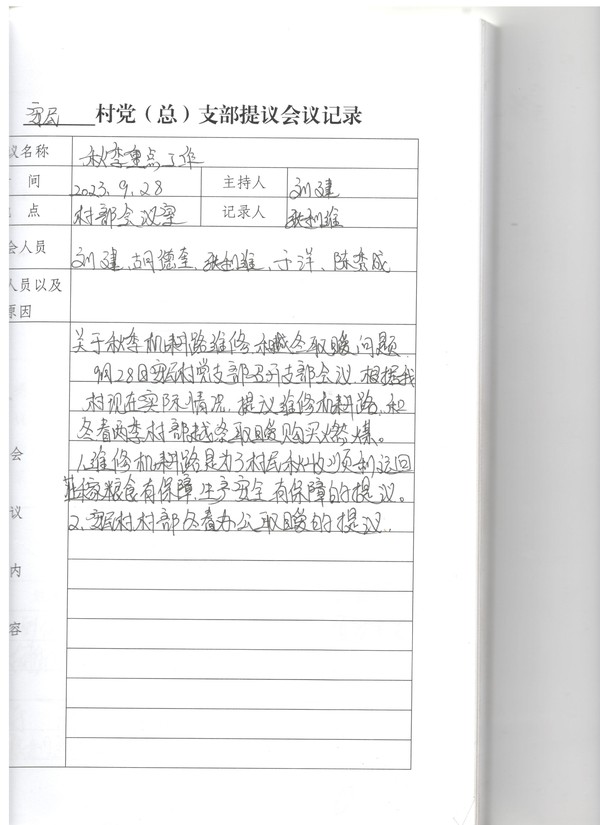 富民 村党（总）支部提议会议记录
议名称 秋季重点工作
间 2023.9.28 主持人 刘建
点 村部会议室 记录人 利维
会人员 刘建、胡德奎、利维、于洋、陈 成
人员以及
原因
关于秋季机耕路维修和越冬取暖问题
9月28日富民村党支部召开支部会议，根据我
村现在实际情况，提议维修机耕路，和
冬春两季村部越冬取暖购买燃煤。
1、维修机耕路是为了村民秋收顺利运回
庄稼粮食有保障，生产安全有保障的提议。
2、富民村村部冬春办公取暖的提议。
会
议
内
容